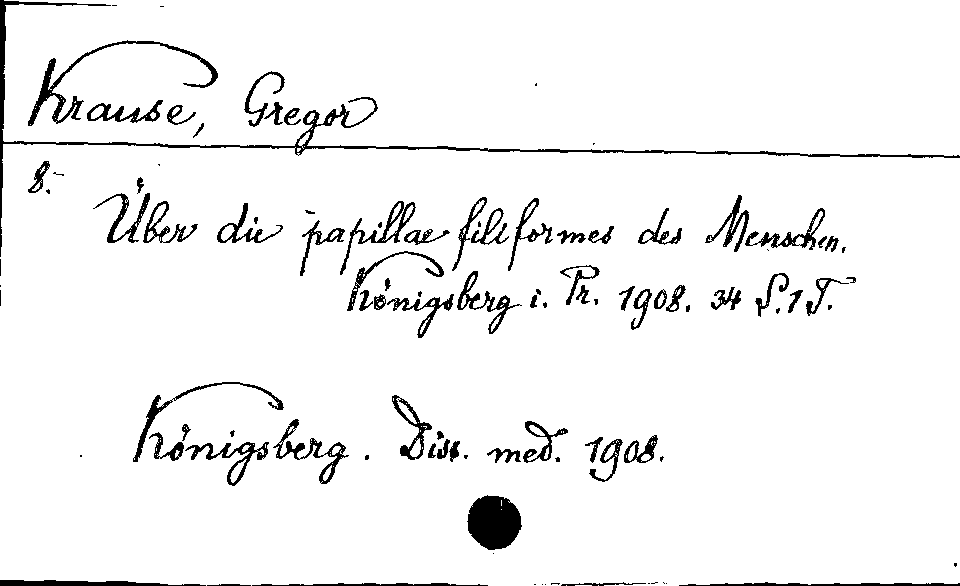 Krause, Gregor
8.-
Über die papillae filiformes des Menschen.
Königsberg i. Pr. 1908. 34 S. 1 T.
Königsberg. Diss. med. 1908.